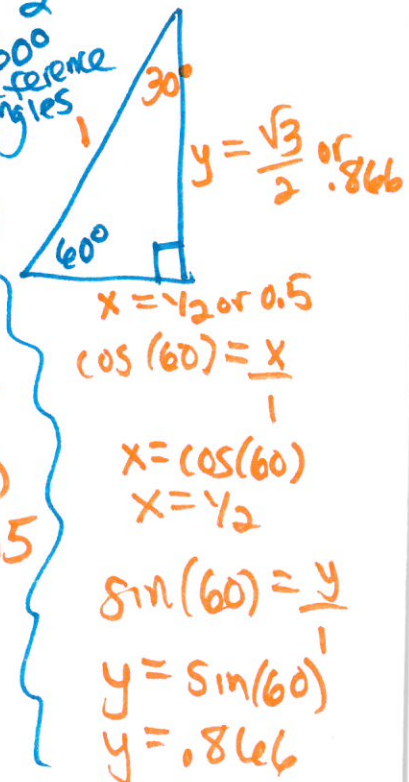 2
60°
ference
ngles
30°
1
y = √3/2 or .866
60°
x = 1/2 or 0.5
cos(60) = x/1
x = cos(60)
x = 1/2
5
sin(60) = y/1
y = sin(60)
y = .866